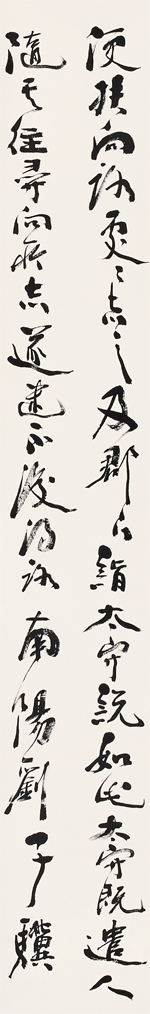 便扶向路處〻志之及郡下詣太守說如此太守既遣人
隨其往尋向所志遂迷不復得路南陽劉子驥